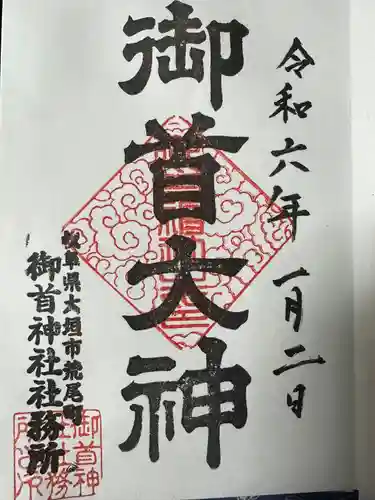 令和六年 一月二日
御首大神
岐阜県大垣市荒尾町
御首神社社務所